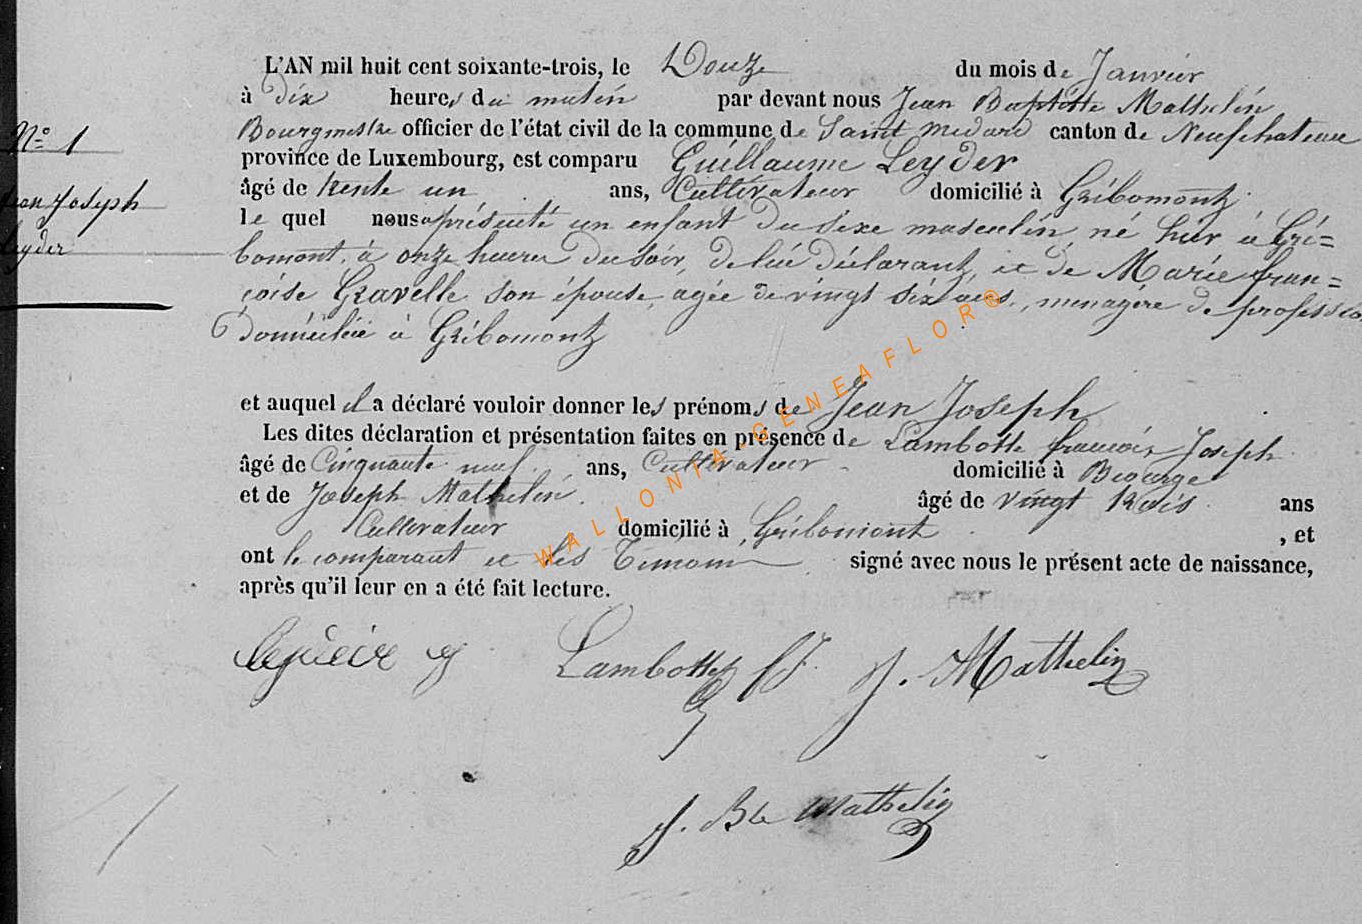 L'AN mil huit cent soixante-trois, le Douze du mois de Janvier
à dix heures du matin par devant nous Jean Baptiste Mathelin
Bourgmestre officier de l'état civil de la commune de Saint Medard canton de Neufchateau
N° 1
province de Luxembourg, est comparu Guillaume Leyder
âgé de trente un ans, Cultivateur domicilié à Gribomont
Jean Joseph
Leyder
le quel nous a présenté un enfant du sexe masculin né hier à Gri=
bomont, à onze heures du soir, de lui déclarant, et de Marie fran=
çoise Gravelle son épouse, agée de vingt six ans, menagère de profession
Domiciliée à Gribomont
et auquel il a déclaré vouloir donner les prénoms de Jean Joseph
Les dites déclaration et présentation faites en présence de Lambotte françois Joseph
âgé de Cinquante neuf ans, Cultivateur domicilié à Biourge
et de Joseph Mathelin âgé de vingt trois ans
Cultivateur domicilié à Gribomont , et
ont le comparant et les Temoins signé avec nous le présent acte de naissance,
après qu'il leur en a été fait lecture.
Lambotte f J. J. Mathelin
J. Bte Mathelin
WALLONIA-GENEAFLOR®